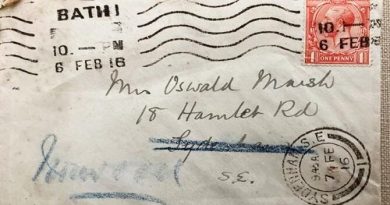 BATH
10.— PM
6 FEB 16
10.—PM
6 FEB 16
ONE PENNY
Mrs Oswald Marsh
18 Hamlet Rd
Sydenham
S.E.
SYDENHAM S.E.
7 FE
16